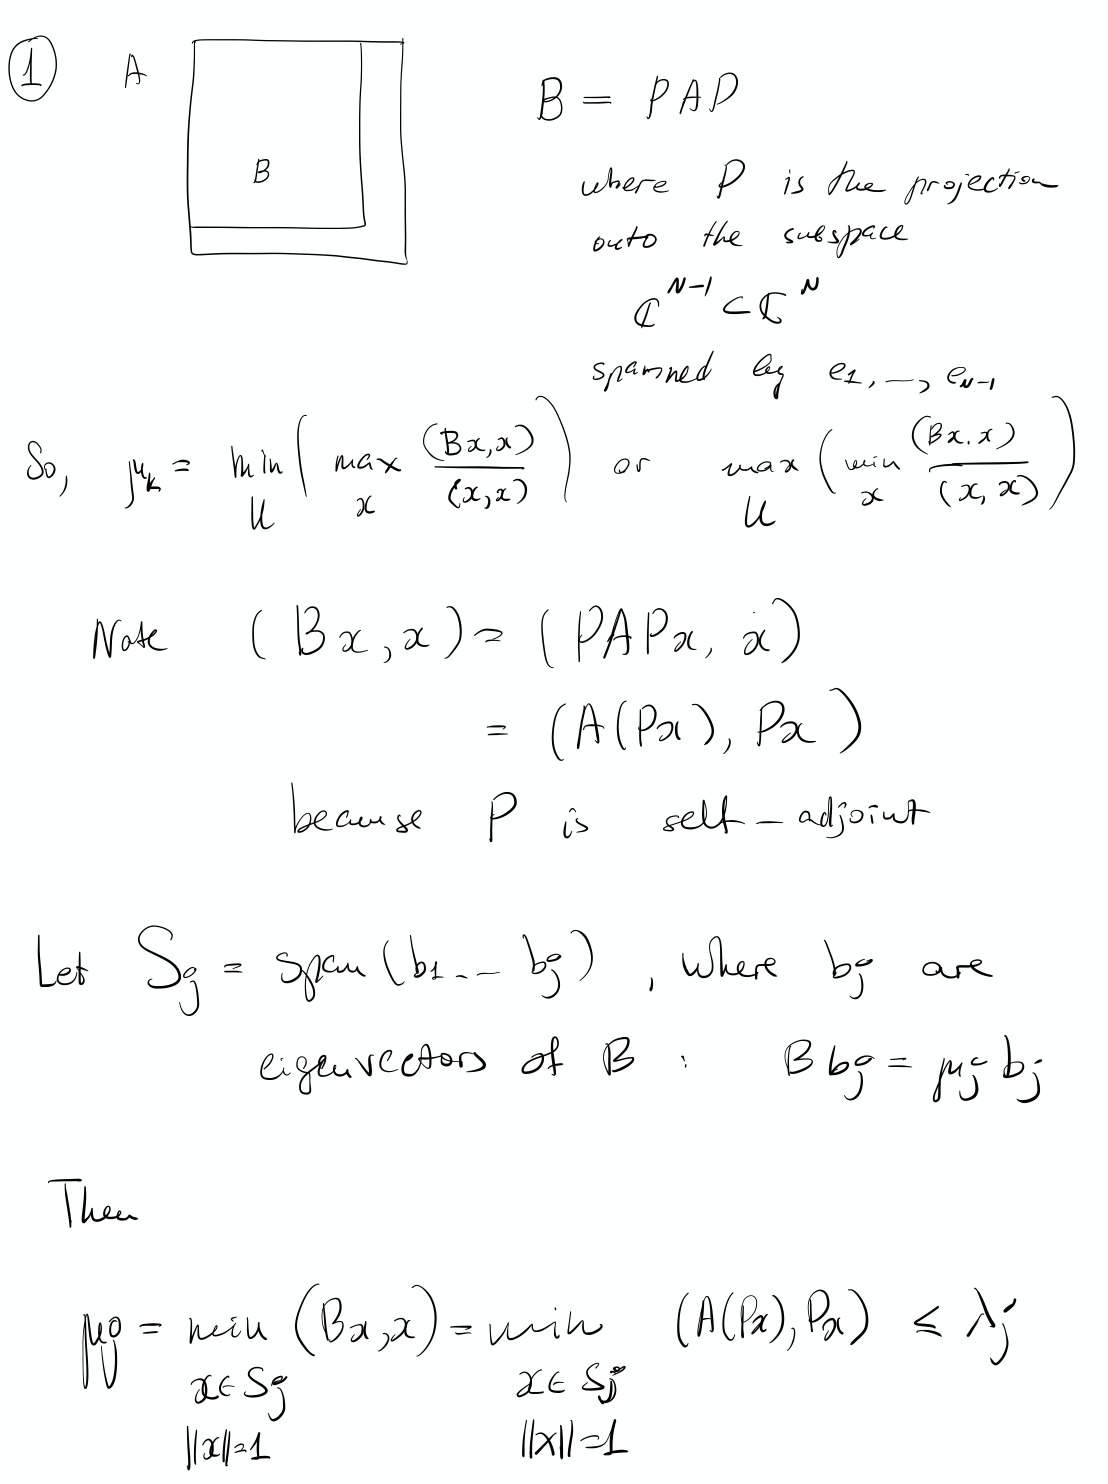 ① A B = PAP
B
where P is the projection
onto the subspace
ℂ^{N-1} ⊂ ℂ^N
spanned by e_1, —, e_{N-1}
So, μ_k = min_U ( max_x (Bx,x)/(x,x) ) or max_U ( min_x (Bx.x)/(x,x) )
Note (Bx,x) = (PAPx, x)
= (A(Px), Px)
because P is self-adjoint
Let S_j = span(b_1 -- b_j), where b_j are
eigenvectors of B : B b_j = μ_j b_j
Then
μ_j = min_{x∈S_j ||x||=1} (Bx,x) = min_{x∈S_j ||x||=1} (A(Px),Px) ≤ λ_j